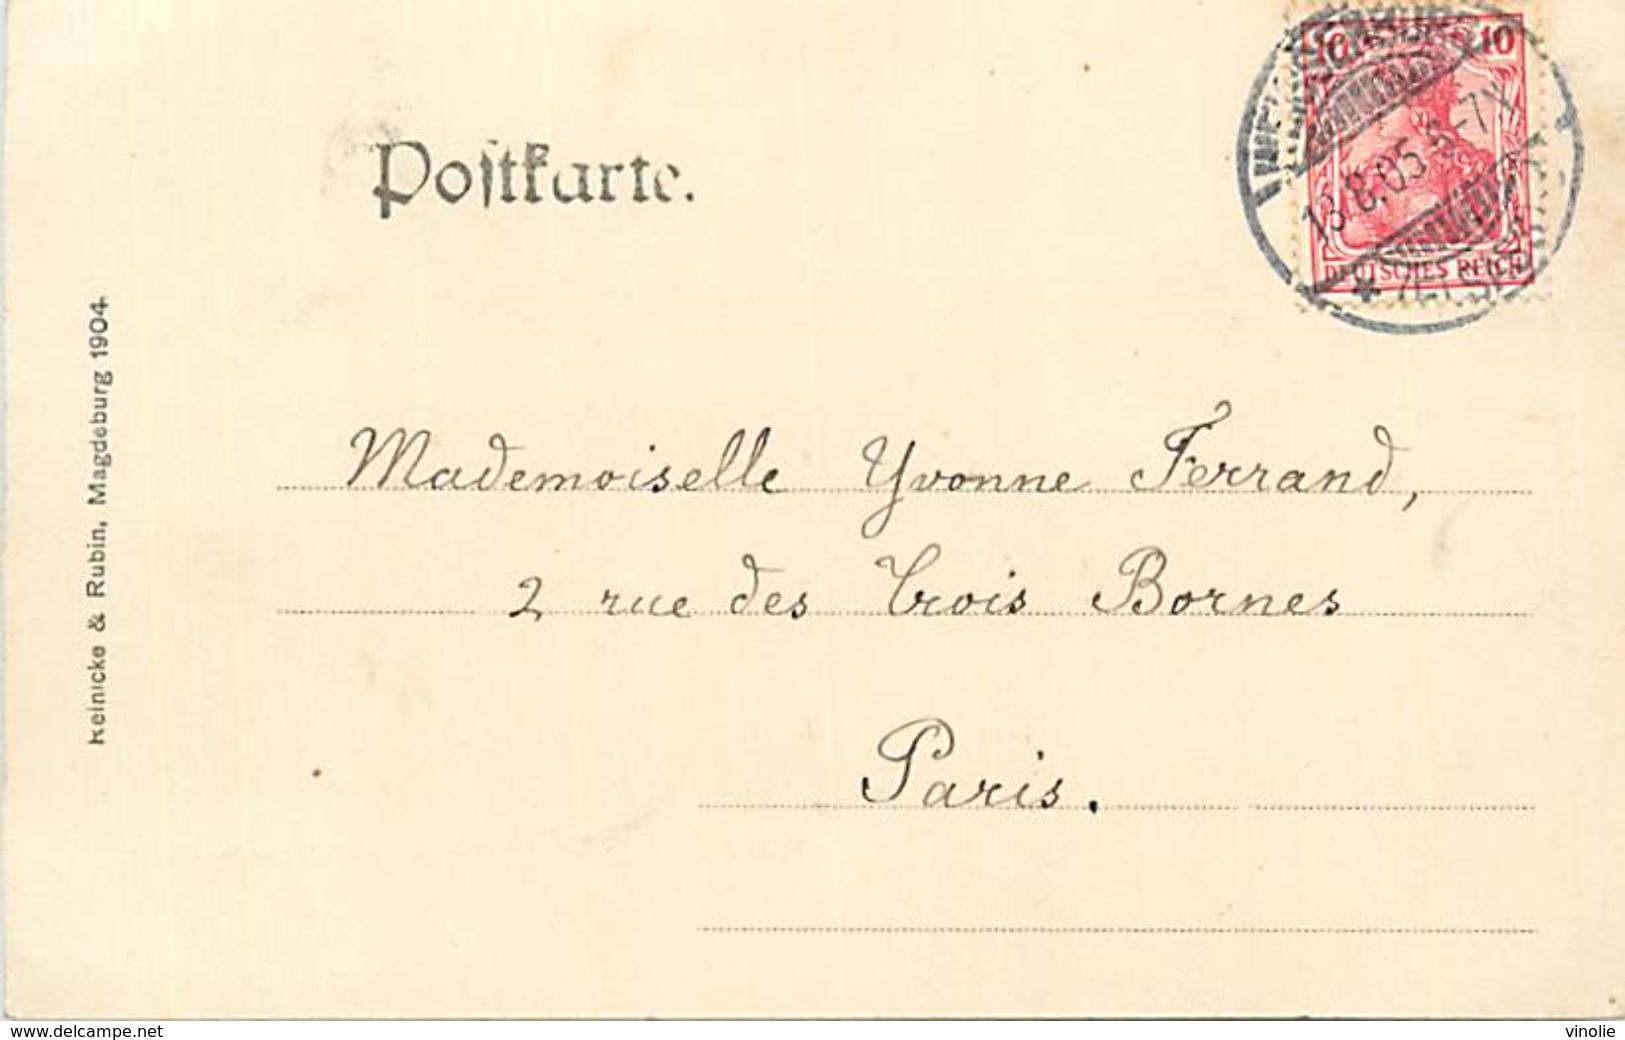 Postkarte.
10 10
13.8.05 5-7N.
DEUTSCHES REICH
Reinicke & Rubin, Magdeburg 1904.
Mademoiselle Yvonne Ferrand,
2 rue des Trois Bornes
Paris.
www.delcampe.net
vinolie